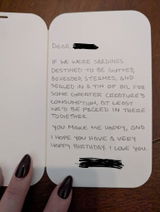 DEAR
IF WE WERE SARDINES
DESTINED TO BE GUTTED,
BEHEADED, STEAMED, AND
SEALED IN A TIN OF OIL FOR
SOME GREATER CREATURE'S
CONSUMPTION, AT LEAST
WE'D BE PACKED IN THERE
TOGETHER.
YOU MAKE ME HAPPY, AND
I HOPE YOU HAVE A VERY
HAPPY BIRTHDAY. I LOVE YOU.